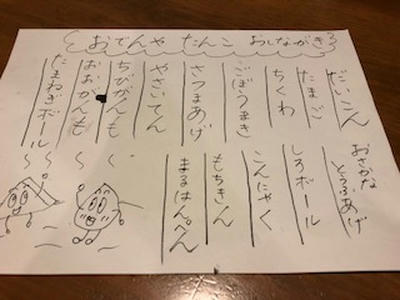 おでんや たんこ おしながき
だいこん
たまご
ちくわ
ごぼうまき
さつまあげ
やさいてん
ちびがんも
おおがんも
たまねぎボール
おさかな
とうふあげ
しろボール
こんにゃく
もちきん
まるはんぺん